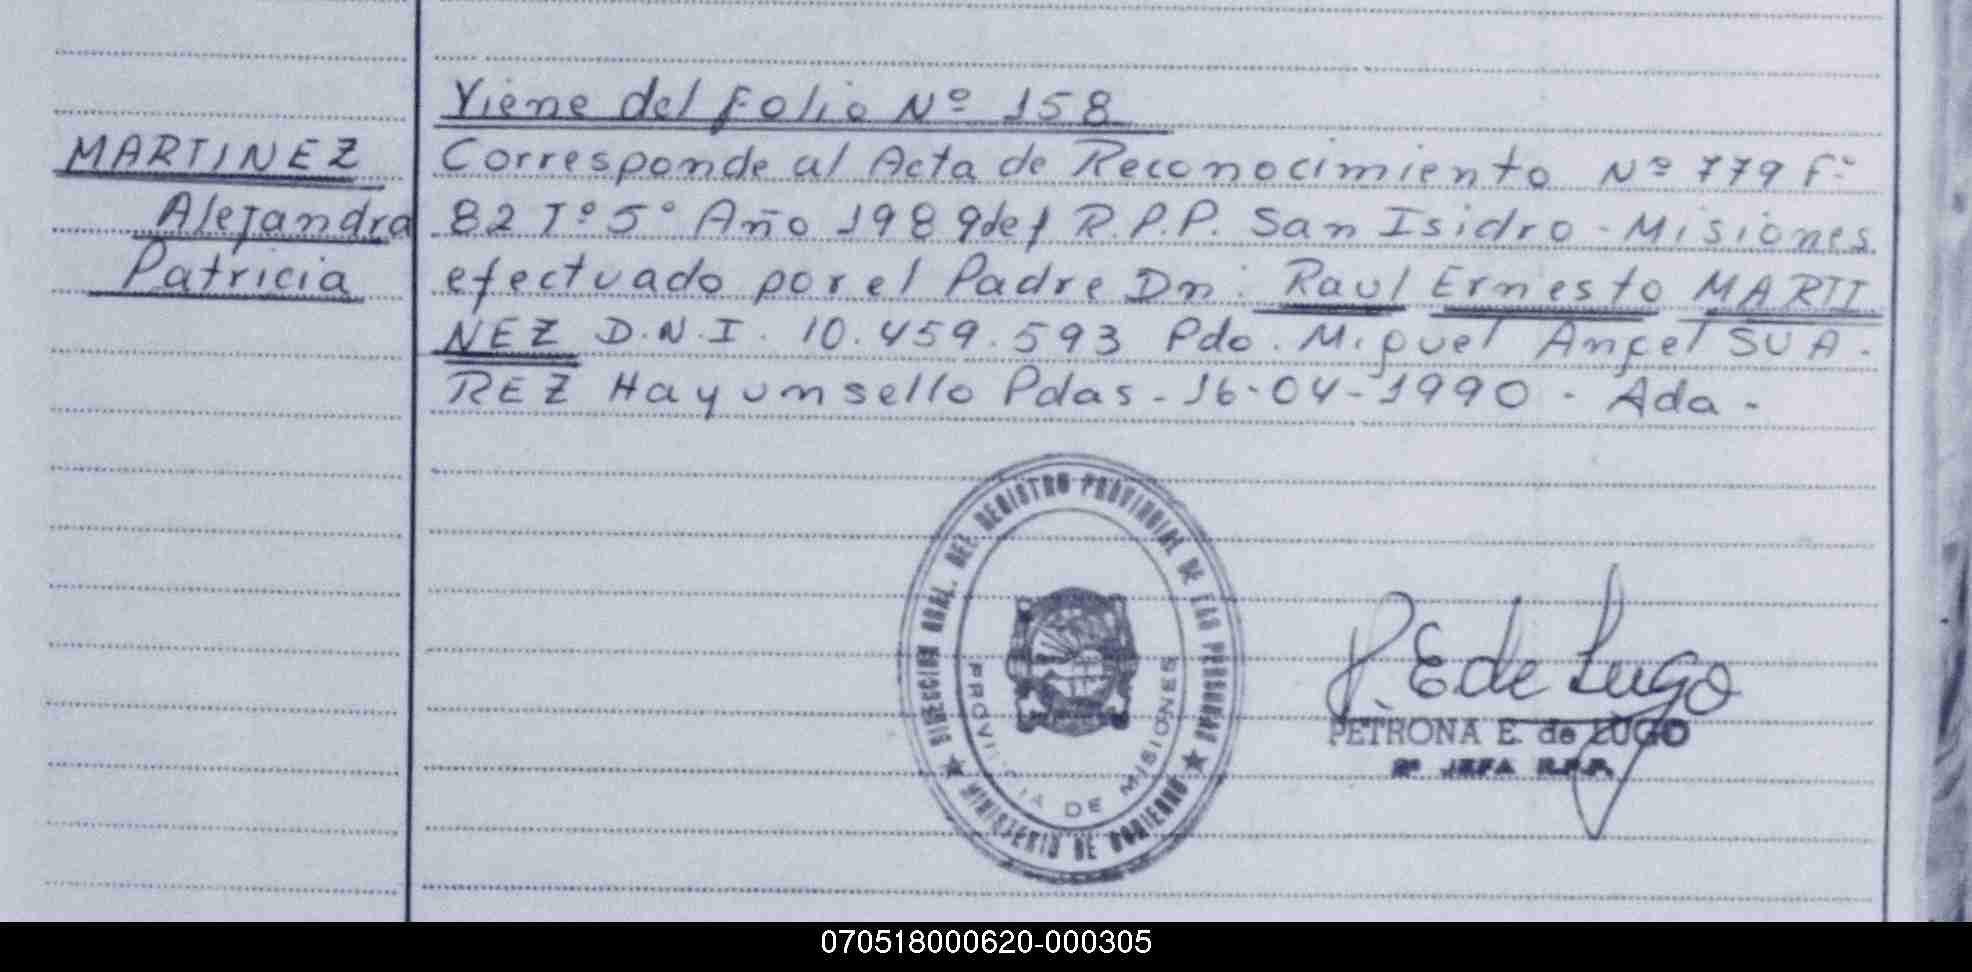 Viene del Folio Nº 158
MARTINEZ
Alejandra
Patricia
Corresponde al Acta de Reconocimiento Nº 779 Fº
82 Tº 5º Año 1989 del R.P.P. San Isidro - Misiones
efectuado por el Padre Dn: Raul Ernesto MARTI
NEZ D.N.I. 10.459.593 Pdo. Miguel Angel SUA-
REZ Hay un sello Pdas - 16-04-1990 - Ada -
DIRECCION GRAL. DEL REGISTRO PROVINCIAL DE LAS PERSONAS
★ MINISTERIO DE GOBIERNO ★
PROVINCIA DE MISIONES
P. E de Lugo
PETRONA E. de LUGO
2º JEFA R.P.P.
070518000620-000305